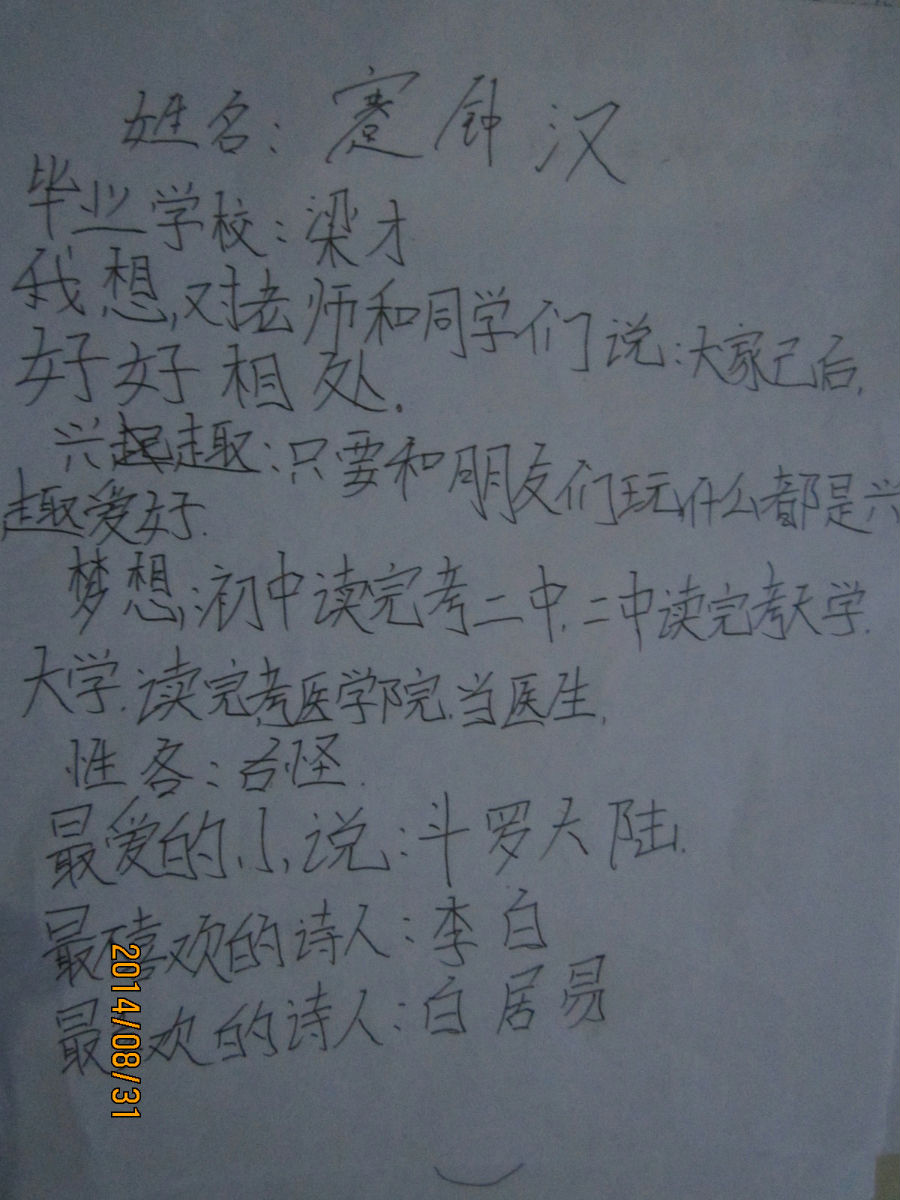 姓名：蹇钟汉
毕业学校：梁才
我想，对老师和同学们说：大家己后，
好好相处。
兴趣：只要和朋友们玩，什么都是兴
趣爱好.
梦想：初中读完考二中，二中读完考大学.
大学.读完考医学院.当医生，
性客：古怪.
最爱的小说：斗罗大陆.
最喜欢的诗人：李白
最喜欢的诗人：白居易
2014/08/31